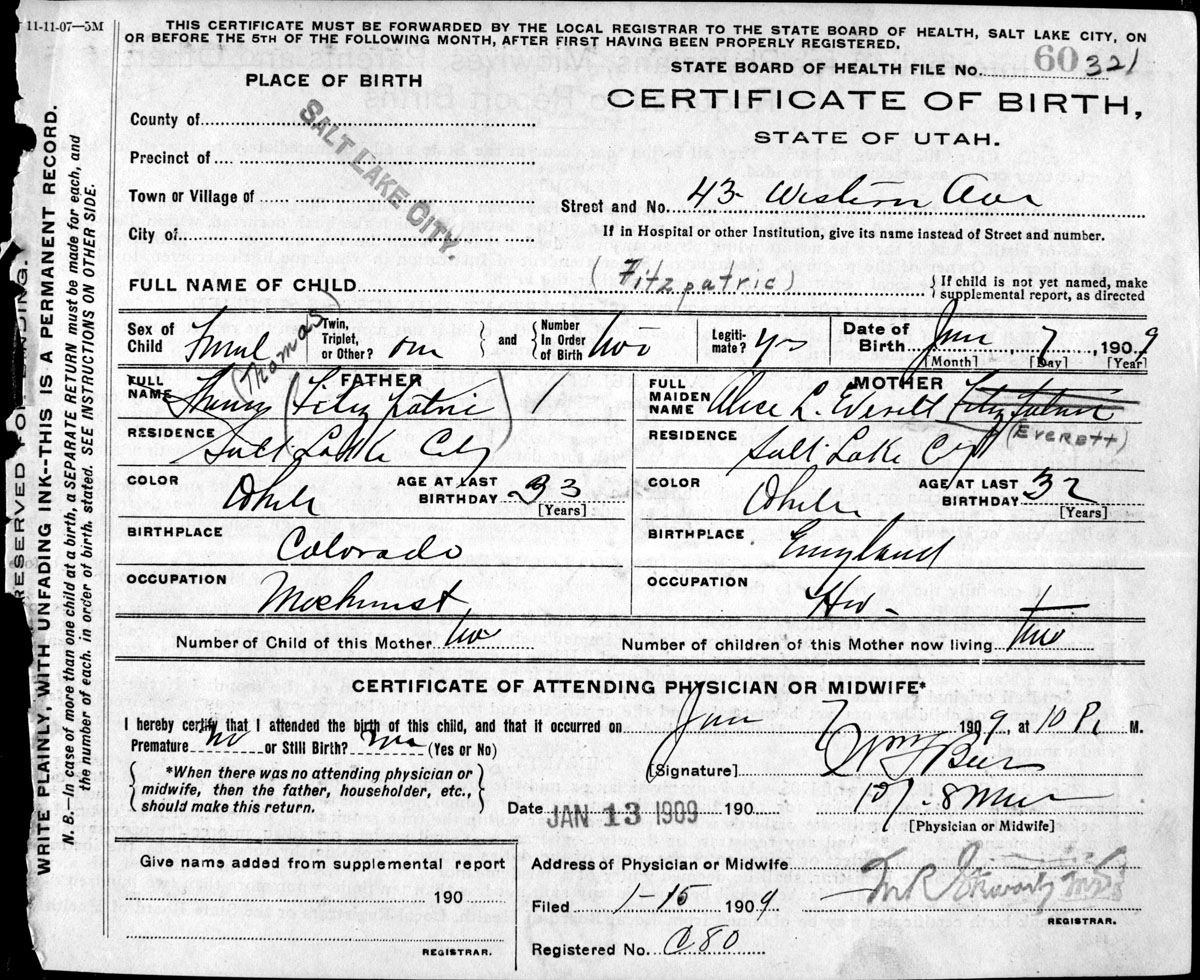 11-11-07—5M
THIS CERTIFICATE MUST BE FORWARDED BY THE LOCAL REGISTRAR TO THE STATE BOARD OF HEALTH, SALT LAKE CITY, ON
OR BEFORE THE 5TH OF THE FOLLOWING MONTH, AFTER FIRST HAVING BEEN PROPERLY REGISTERED.
STATE BOARD OF HEALTH FILE No. 60 321
PLACE OF BIRTH
CERTIFICATE OF BIRTH,
STATE OF UTAH.
County of
Precinct of
Town or Village of
City of
SALT LAKE CITY
Street and No. 43 Western Ave
If in Hospital or other Institution, give its name instead of Street and number.
FULL NAME OF CHILD (Fitzpatric) { If child is not yet named, make
supplemental report, as directed
Sex of Child
Twin, Triplet, or Other? one } and { Number In Order of Birth two
Legiti- mate? yes
Date of Birth Jan 7, 1909
[Month] [Day] [Year]
FATHER
FULL NAME (Thomas
RESIDENCE Salt Lake City
COLOR White AGE AT LAST BIRTHDAY 33
[Years]
BIRTHPLACE Colorado
OCCUPATION
MOTHER
FULL MAIDEN NAME Alice L.
(Everett)
RESIDENCE Salt Lake City
COLOR White AGE AT LAST BIRTHDAY 32
[Years]
BIRTHPLACE England
OCCUPATION Hw
Number of Child of this Mother two
Number of children of this Mother now living two
CERTIFICATE OF ATTENDING PHYSICIAN OR MIDWIFE*
I hereby certify that I attended the birth of this child, and that it occurred on Jan 7 1909, at 10 P. M.
Premature no or Still Birth? no (Yes or No)
{ *When there was no attending physician or
midwife, then the father, householder, etc.,
should make this return. }
[Signature]
Date JAN 13 1909 190
[Physician or Midwife]
Give name added from supplemental report
190
REGISTRAR.
Address of Physician or Midwife
Filed 1-15 1909
REGISTRAR.
Registered No. C80
RESERVED FOR BINDING.
WRITE PLAINLY, WITH UNFADING INK--THIS IS A PERMANENT RECORD.
N. B.—In case of more than one child at a birth, a SEPARATE RETURN must be made for each, and
the number of each, in order of birth, stated. SEE INSTRUCTIONS ON OTHER SIDE.